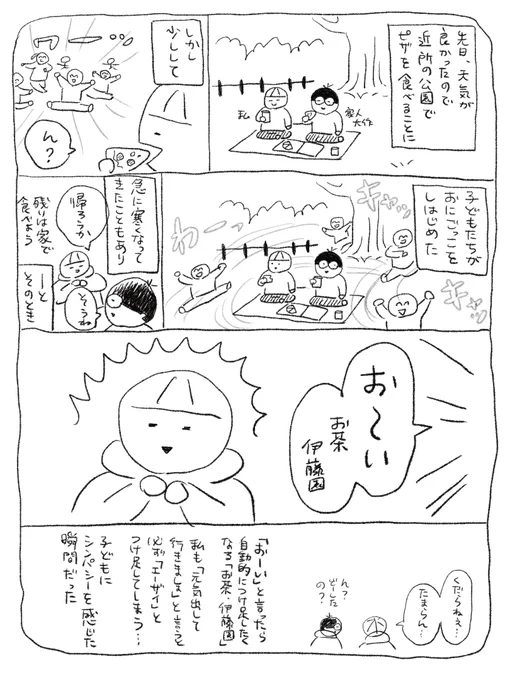 先日、天気が
良かったので
近所の公園で
ピザを食べることに
私
友人
しかし
少しして
ワーーッ
ん?
子どもたちが
おにごっこを
しはじめた
キャッ…
キャッ…
わーっ
急に寒くなって
きたこともあり
帰ろうか
残りは家で
食べよう
そうね
ーと
そのとき
お〜い
お茶
伊藤園
くだらねぇ…
たまらん…
ん?
どーした
の?
「おーい」と言ったら
自動的につけ足したく
なる「お茶・伊藤園」
私も「元気出して
行きましょ」と言うと
必ず「エーザイ」と
つけ足してしまう…
子どもに
シンパシーを感じた
瞬間だった